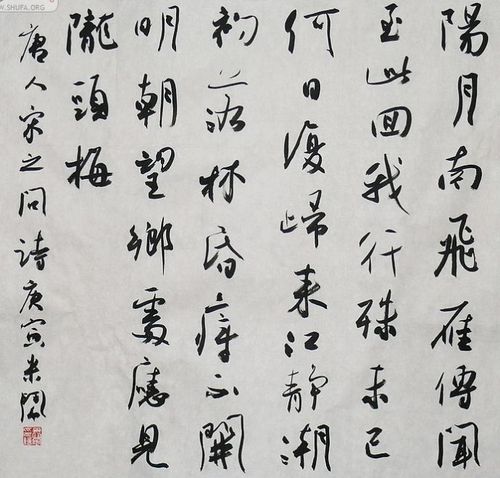 陽月南飛雁傳聞
至此回我行殊未已
何日復歸来江靜潮
初落林昏瘴不開
明朝望鄉處應見
隴頭梅
唐人宋之問詩庚寅
W.SHUFA.ORG